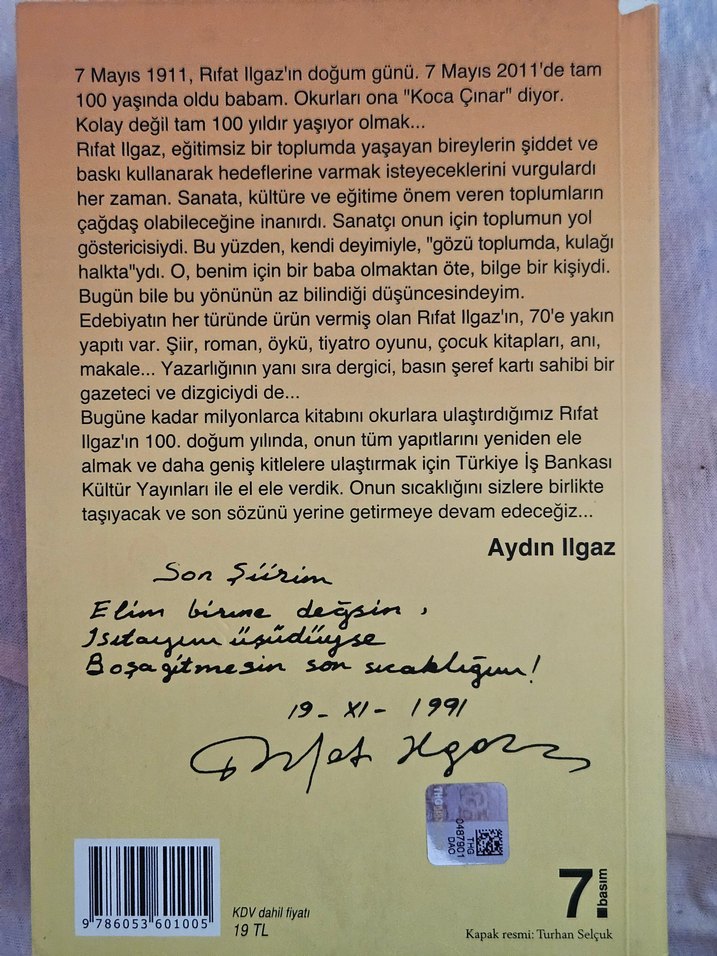 7 Mayıs 1911, Rıfat Ilgaz'ın doğum günü. 7 Mayıs 2011'de tam
100 yaşında oldu babam. Okurları ona "Koca Çınar" diyor.
Kolay değil tam 100 yıldır yaşıyor olmak...
Rıfat Ilgaz, eğitimsiz bir toplumda yaşayan bireylerin şiddet ve
baskı kullanarak hedeflerine varmak isteyeceklerini vurgulardı
her zaman. Sanata, kültüre ve eğitime önem veren toplumların
çağdaş olabileceğine inanırdı. Sanatçı onun için toplumun yol
göstericisiydi. Bu yüzden, kendi deyimiyle, "gözü toplumda, kulağı
halkta"ydı. O, benim için bir baba olmaktan öte, bilge bir kişiydi.
Bugün bile bu yönünün az bilindiği düşüncesindeyim.
Edebiyatın her türünde ürün vermiş olan Rıfat Ilgaz'ın, 70'e yakın
yapıtı var. Şiir, roman, öykü, tiyatro oyunu, çocuk kitapları, anı,
makale... Yazarlığının yanı sıra dergici, basın şeref kartı sahibi bir
gazeteci ve dizgiciydi de...
Bugüne kadar milyonlarca kitabını okurlara ulaştırdığımız Rıfat
Ilgaz'ın 100. doğum yılında, onun tüm yapıtlarını yeniden ele
almak ve daha geniş kitlelere ulaştırmak için Türkiye İş Bankası
Kültür Yayınları ile el ele verdik. Onun sıcaklığını sizlere birlikte
taşıyacak ve son sözünü yerine getirmeye devam edeceğiz...
Aydın Ilgaz
Son Şiirim
Elim birine değsin,
Isıtayım üşüdüyse
Boşa gitmesin son sıcaklığım!
19 - XI - 1991
Rıfat Ilgaz
THG
0487901
THG
DAO
9 786053 601005
KDV dahil fiyatı
19 TL
7. basım
Kapak resmi: Turhan Selçuk